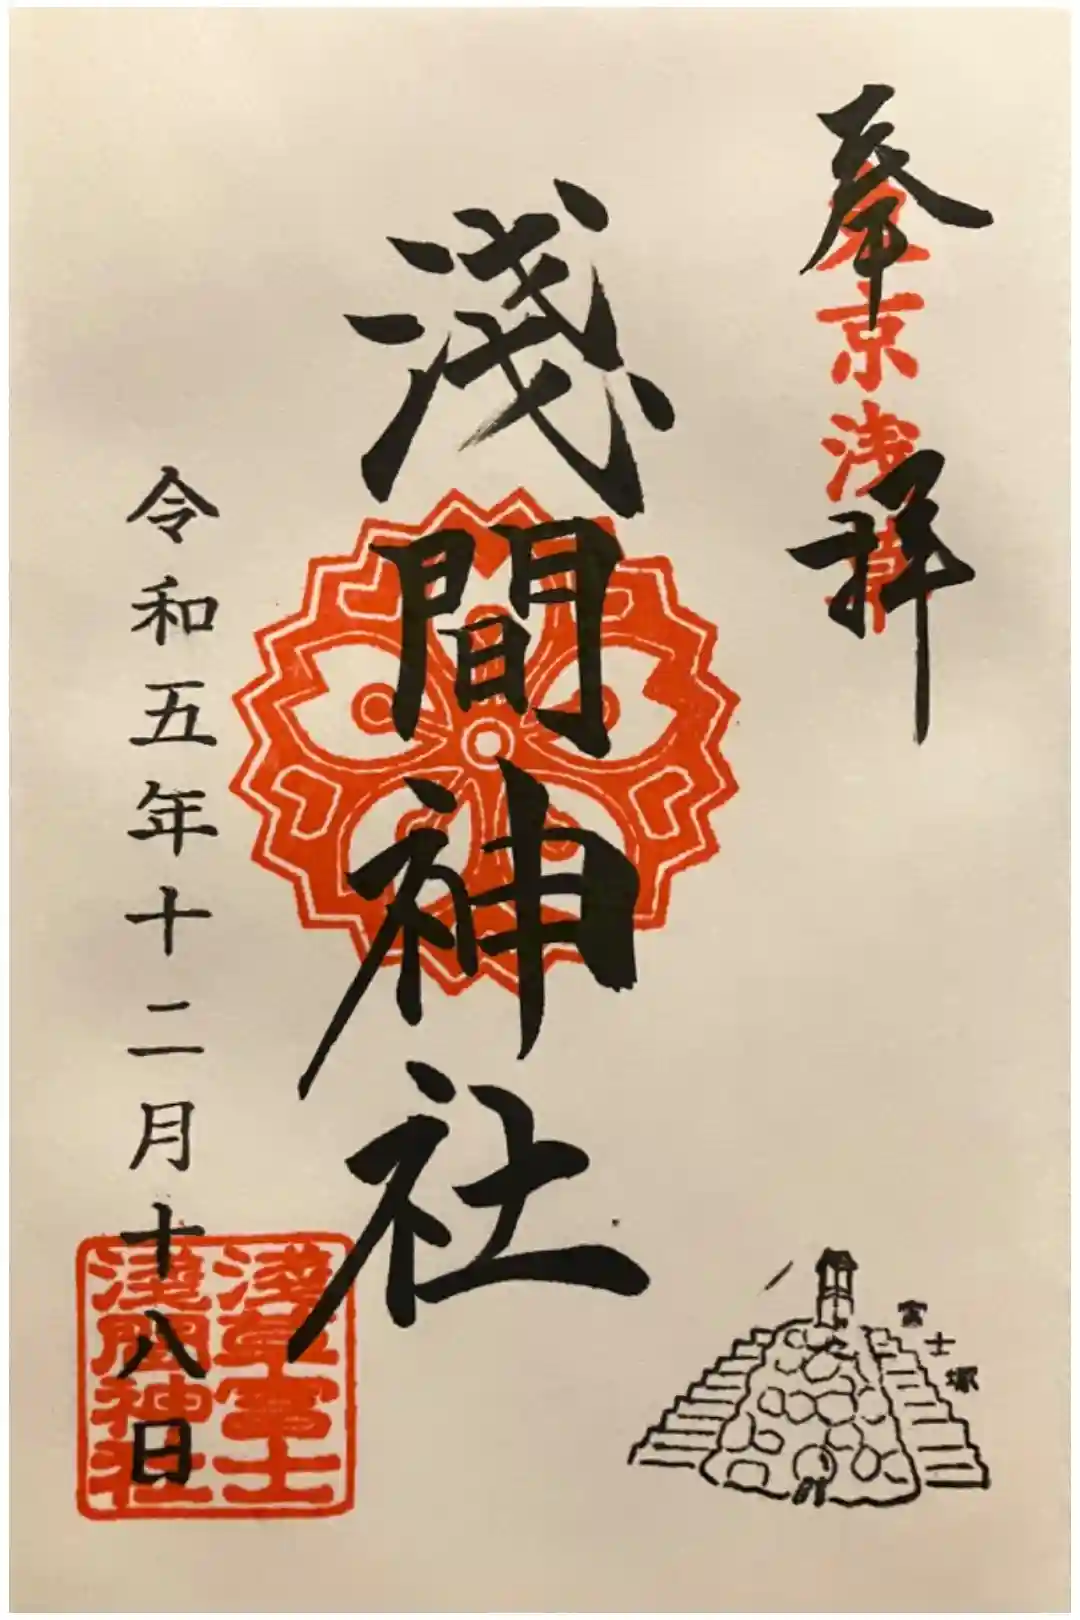 奉拝
東京浅草
淺間神社
富士塚
令和五年十二月十八日
淺草富士
淺間神社